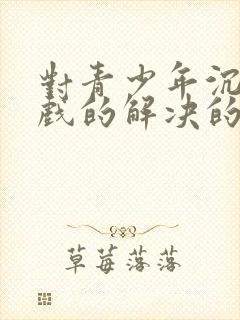 對青少年沉
戲的解決的
草莓落落